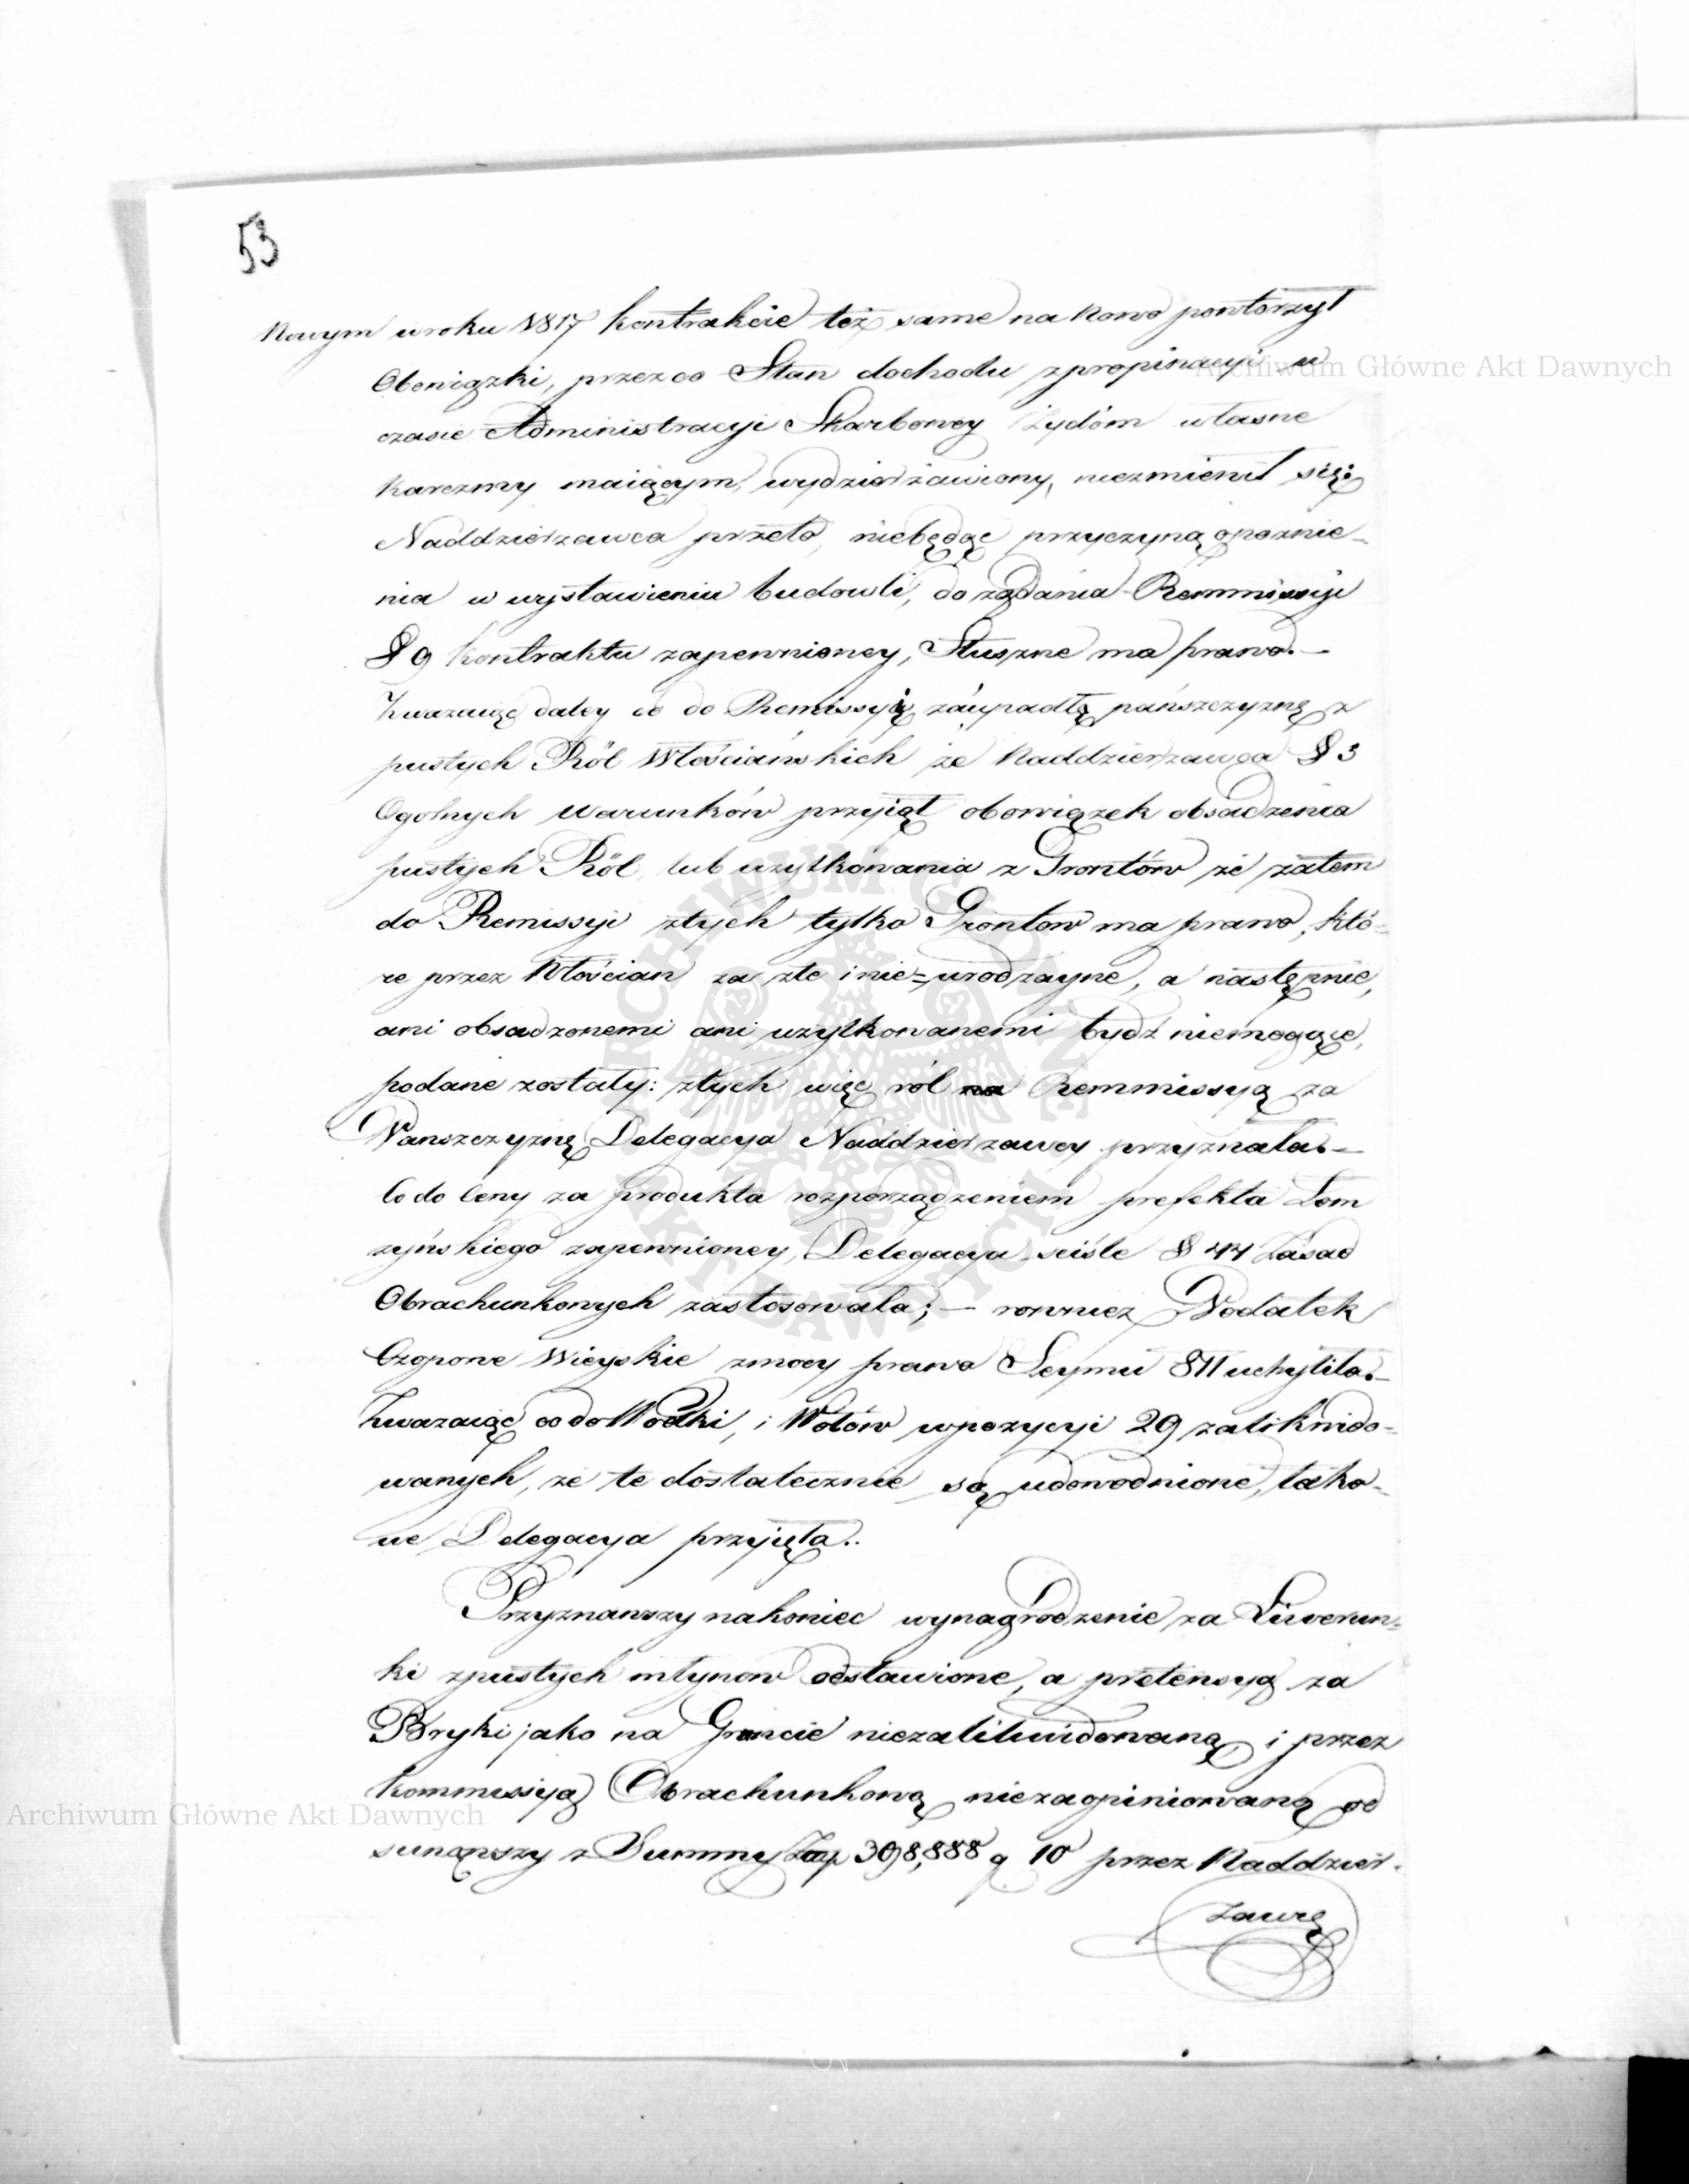 53
Nowym w roku 1817 kontrakcie też same na nowo powtorzył
Obowiązki, przez co Stan dochodu z propinacyi w
czasie Administracyi Skarbowey Żydóm własne
Karczmy maiącym, wydzierżawiony, niezmienił się.
Naddzierzawca przeto, niebędąc przyczyną opoznie-
nia w wystawieniu budowli, do żądania Remmissyi
§ 9 Kontraktu zapewnioney, Słuszne ma prawo.—
Zwazaiąc daley co do Remissyi za upadłą pańszczyznę z
pustych Ról Włościańskich że Naddzierzawca § 3
Ogolnych Warunków przyiął obowiązek obsadzenia
pustych Ról, lub uzytkowania z Grontów że zatem
do Remissyi złych tylko Grontow ma prawo, któ-
re przez Włościan za złe i nie=urodzayne, a następnie,
ani obsadzonemi ani uzytkowanemi bydź niemogące,
podane zostały: złych więc ról Remmissyą za
Panszczyznę Delegacya Naddzierzawcy przyznała.—
Co do Ceny za produkta rozporządzeniem prefekta Łom
zyńskiego zapewnioney, Delegacya ściśle § 44 Zasad
Obrachunkowych zastosowała; — rownież Podatek
Czopowe Wieyskie z mocy prawa Seymu 811 uchyliła.—
Zwazaiąc co do Wodki, i Wołów w pozycyi 29 zalikwido-
wanych, że te dostatecznie są udowodnione, tako-
we Delegacya przyięła..
Przyznawszy nakoniec wynagrodzenie za Liwerun-
ki z pustych młynow odstawione, a pretensyą za
Bryki jako na Gruncie niezalikwidowaną i przez
Kommissyą Obrachunkową niezaopiniowaną od
sunąwszy z Summy Złp 398,888 g 10 przez Naddzier-
żawcę
Archiwum Główne Akt Dawnych
Archiwum Główne Akt Dawnych
ARCHIWUM GŁÓWNE AKT DAWNYCH